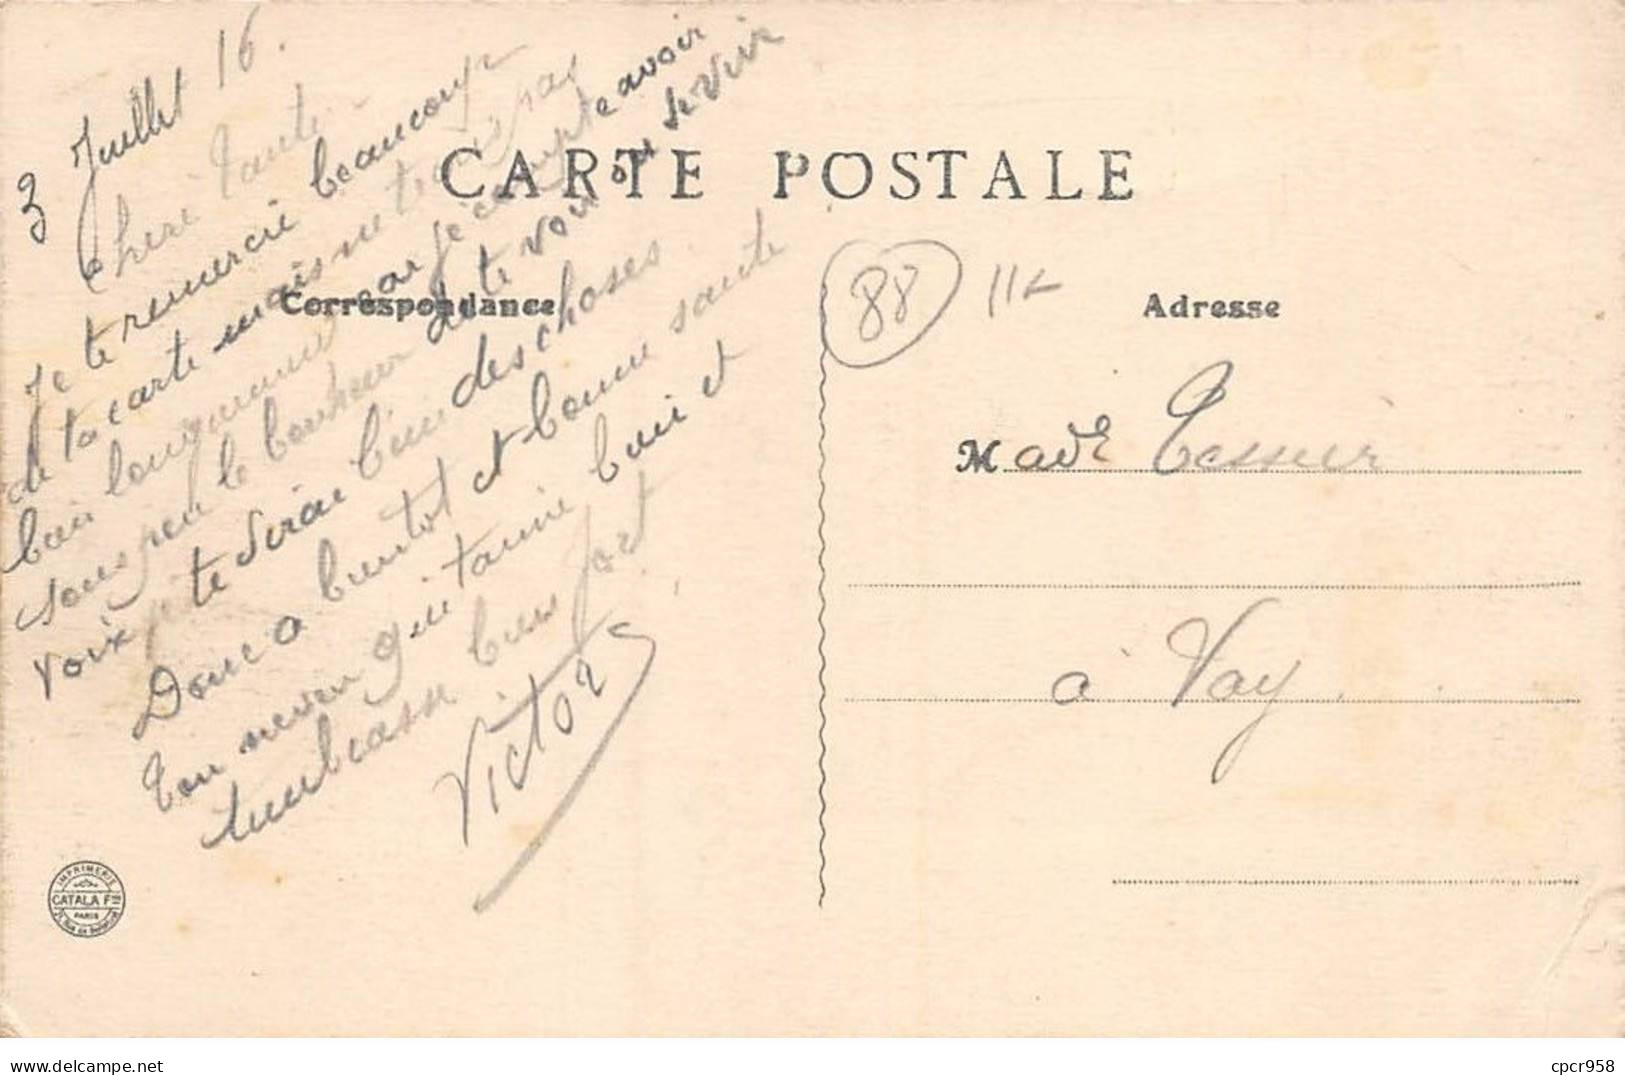 3 Juillet 16.
Chere Tante
Je te remercie beaucoup
de ta carte mais ne t'écris pas
bien longuement car je compte avoir
sous peu le bonheur de te voir ou
voix je te dirai bien des choses.
Donc a bientot et bonne sante
Ton neveu qui t'aime bien et
t'embrasse bien fort
Victor
CARTE POSTALE
Correspondance
Adresse
88
11L
Made Tessier
à Vay
IMPRIMERIE
CATALA Fres
PARIS
cpcr958